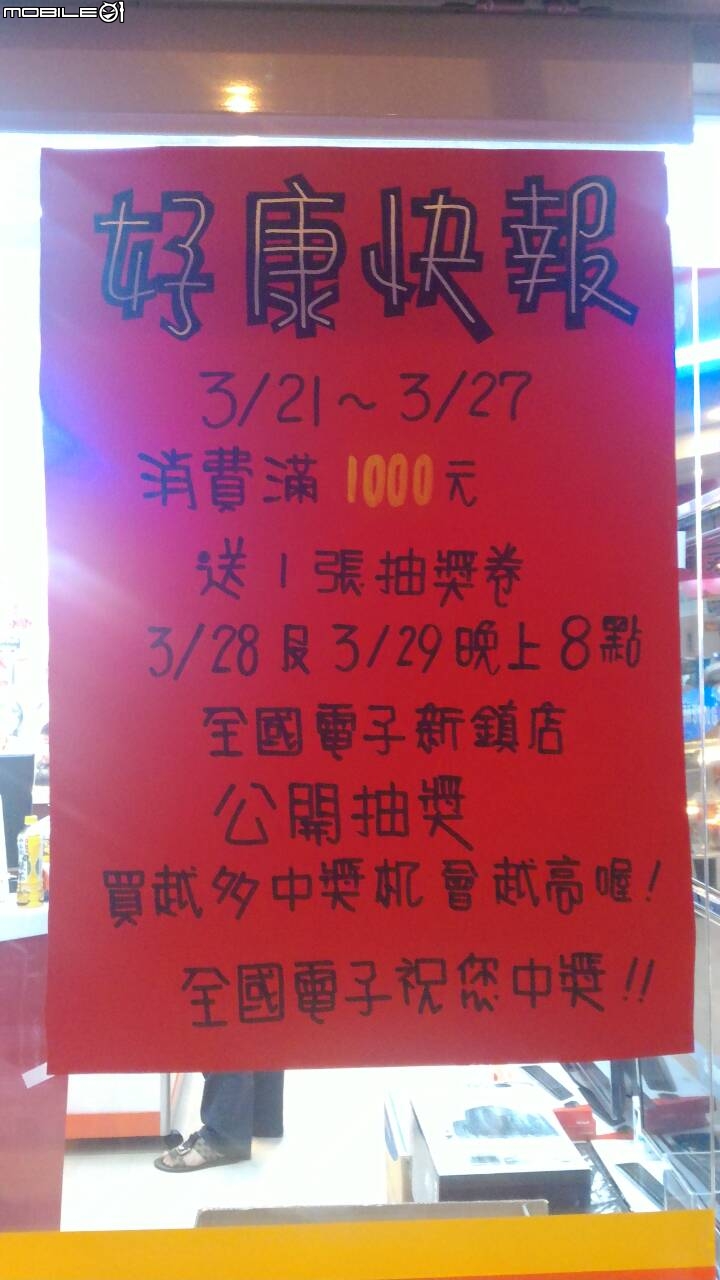 MOBILE01
好康快報
3/21~3/27
消費滿1000元
送1張抽獎券
3/28及3/29晚上8點
全國電子新鎮店
公開抽獎
買越多中獎机會越高喔!
全國電子祝您中獎!!